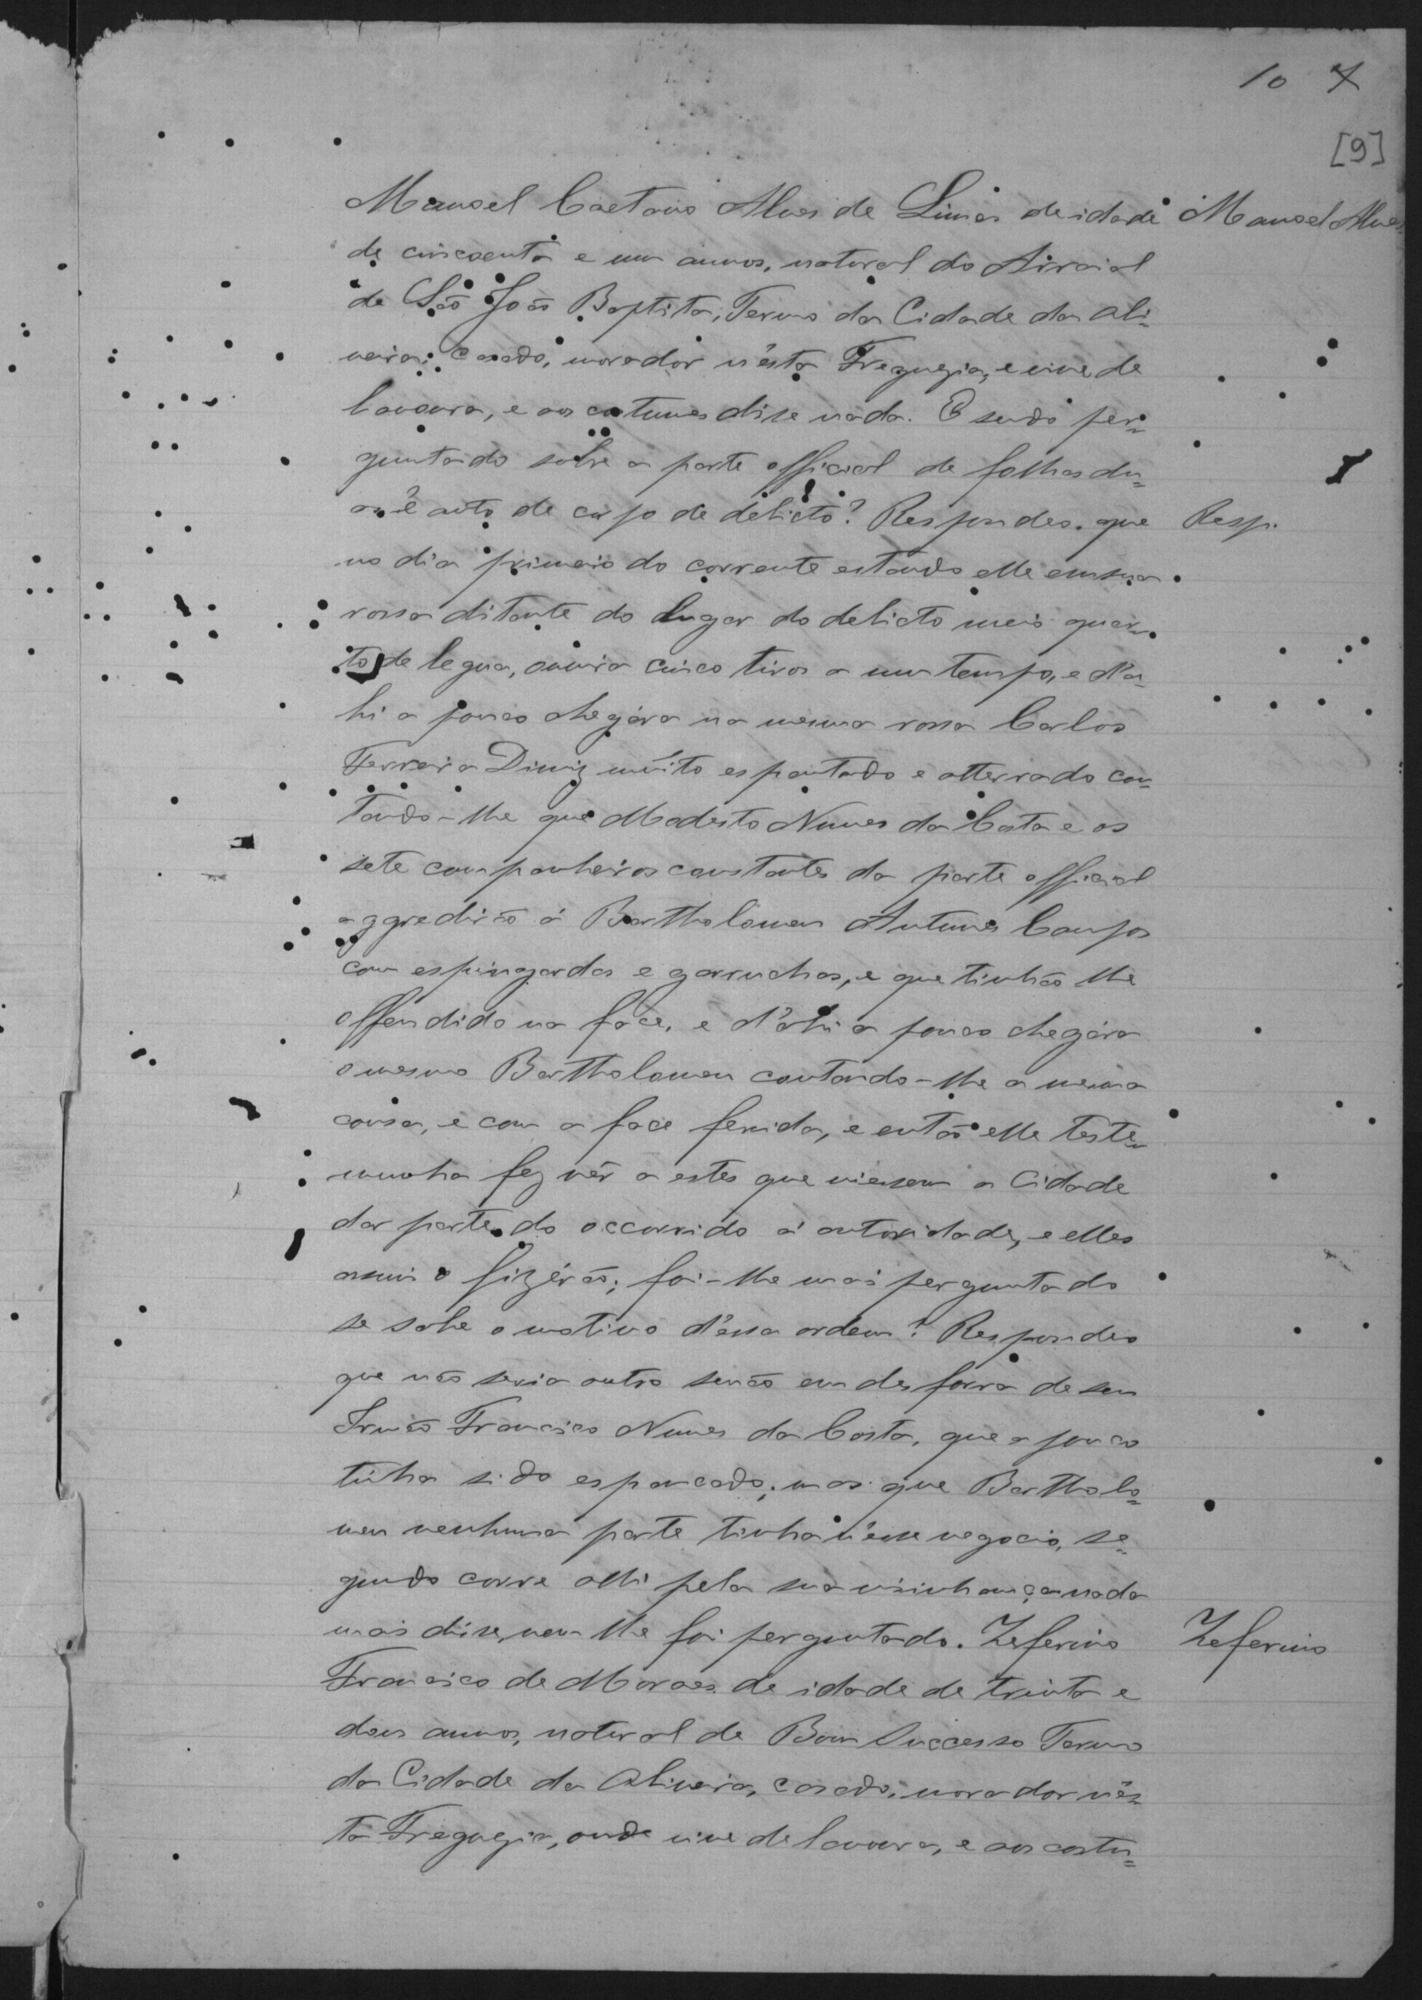 10 7
[9]
Manoel Caetano Alves de Lima de idade Manoel Alves
de cincoenta e um annos, natural do Arraial
de São João Baptista, Termo da Cidade da Oli-
veira, casado, morador n'esta Freguezia, e vive de
lavoura, e aos costumes disse nada. E sendo per=
guntado sobre a parte official de folhas du=
as e auto de corpo de delicto? Respondeo que Resp.
no dia primeiro do corrente estando elle em sua
rossa distante do lugar do delicto meio quar-
to de legua, ouvira cinco tiros a um tempo, e d'a-
hi a pouco chegára na mesma rossa Carlos
Ferreira Diniz muito espantado e atterrado con-
tando-lhe que Modesto Nunes da Costa e os
sete companheiros constantes da parte official
aggredirão á Bartholomeu Antunes Campos
com espingardas e garruchas, e que tinhão lhe
offendido na face, e d'ahi a pouco chegára
o mesmo Bartholomeu contando-lhe a mesma
cousa, e com a face ferida, e então elle teste-
munha fez vêr a estes que viessem a Cidade
dar parte do occorrido á autoridade, e elles
assim o fizérão; foi-lhe mais perguntado
se sabe o motivo d'essa ordem? Respondeo
que não seria outro senão em desforra de seu
Irmão Francisco Nunes da Costa, que a pouco
tinha sido espancado; mas que Bartholo=
meu nenhuma parte tinha n'esse negocio, se=
gundo corre alli pela sua visinhança nada
mais disse, nem lhe foi perguntado. Zeferino Zeferino
Francisco de Moraes de idade de trinta e
dous annos, natural de Bom Successo Termo
da Cidade da Oliveira, casado, morador n'es=
ta Freguezia, onde vive de lavoura, e aos costu=